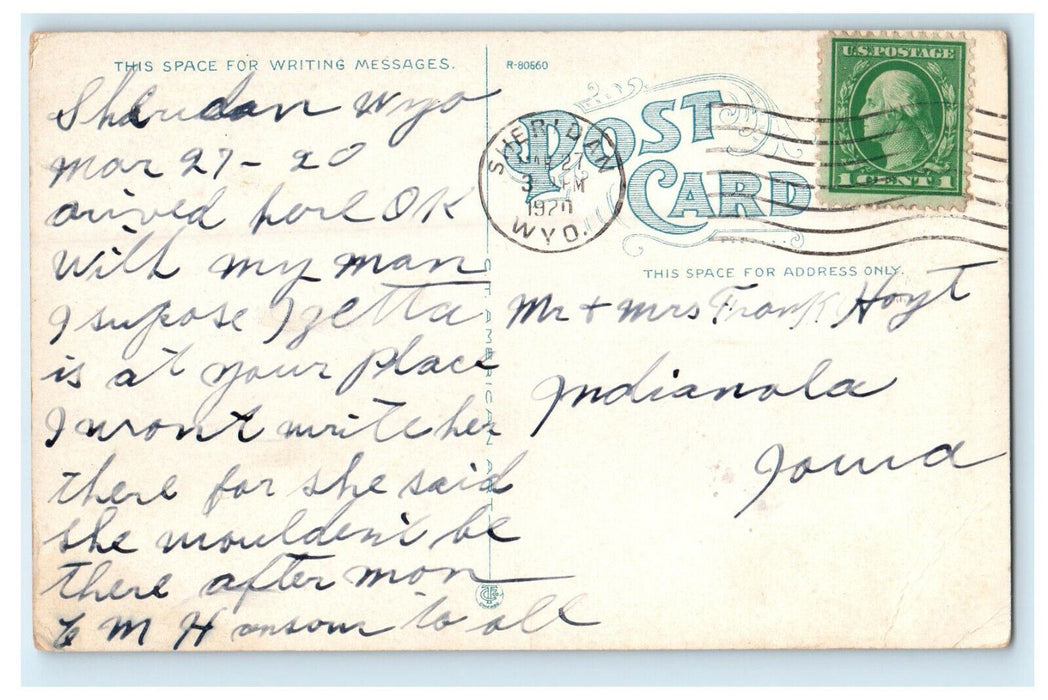 THIS SPACE FOR WRITING MESSAGES.
Sheridan Wyo
Mar 27-20
arived here OK
with my man
I supose Izetta
is at your place
I wont write her
there for she said
she wouldent be
there after mon
M H to all
R-80560
POST
CARD
SHERIDAN
MAR 27
3 PM
1920
WYO.
U.S. POSTAGE
1 CENT 1
THIS SPACE FOR ADDRESS ONLY.
Mr + Mrs Frank Hoyt
Indianola
Iowa